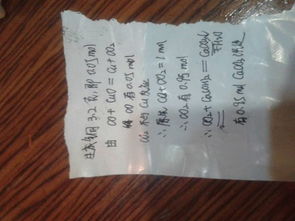 过灰铜 3.2克,即0.05mol
由 CO + CuO = Cu + CO₂
∴ CO 有0.05mol
CO₂ 不与Cu反应
∴ 原混 CO+CO₂ = 1 mol
∴ CO₂ 有 0.95 mol
∴ CO₂ + Ca(OH)₂ = CaCO₃↓ + H₂O
有0.95mol CaCO₃ 沉淀